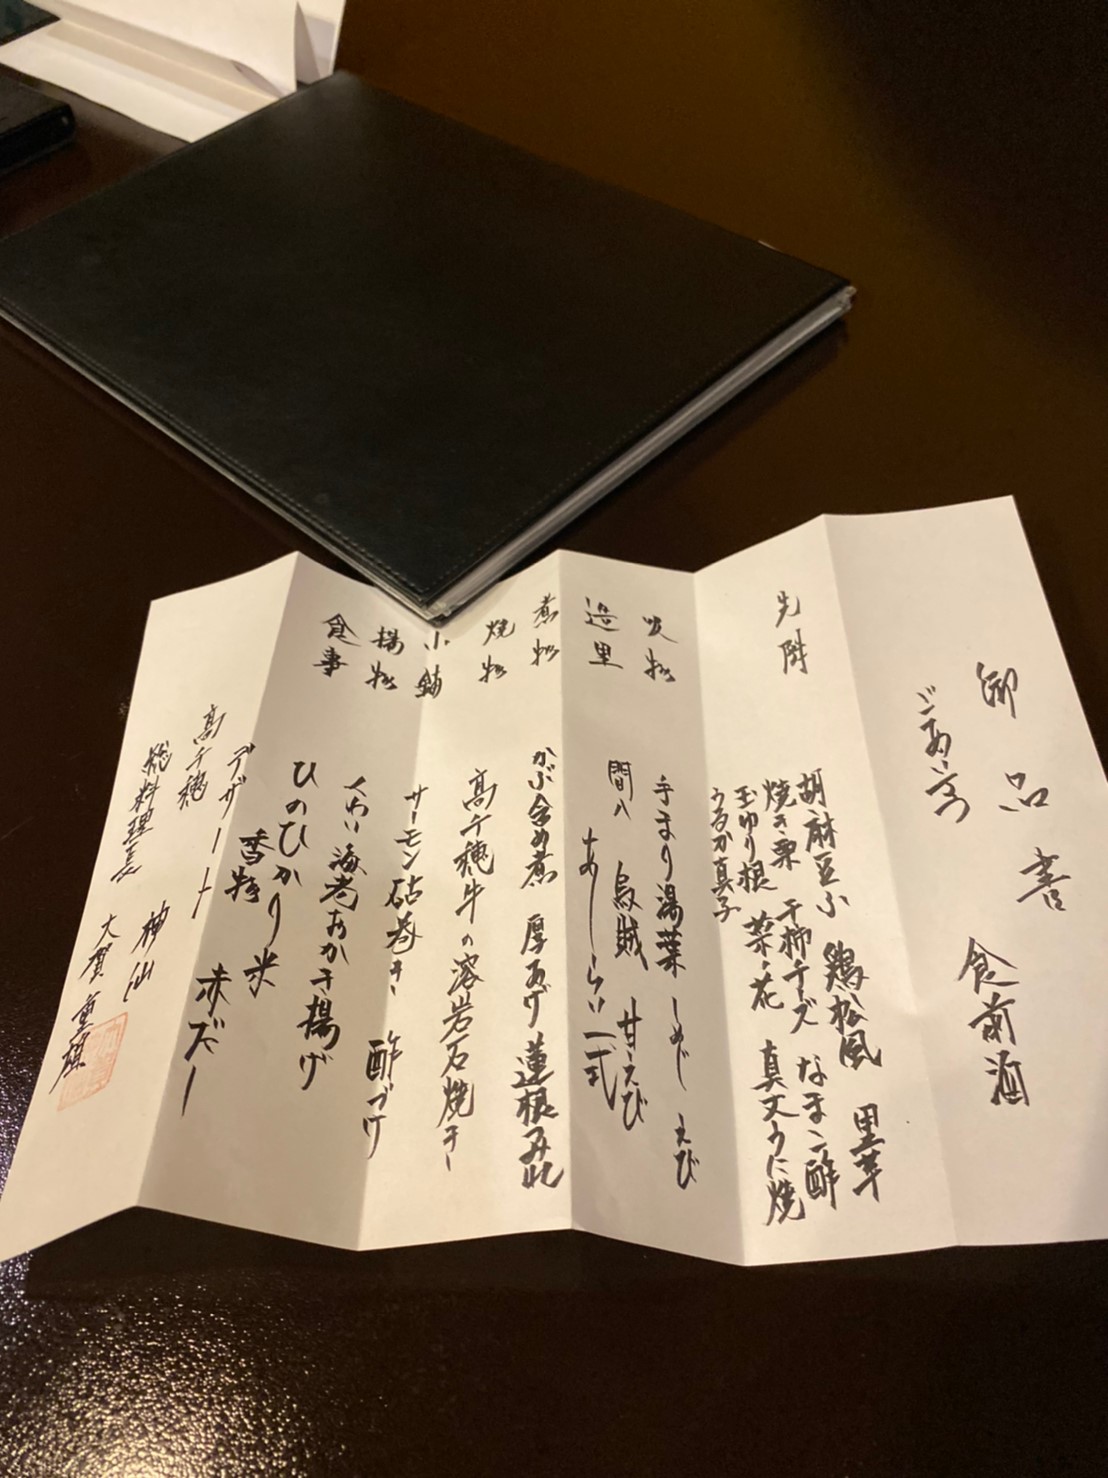 御品書
ごあいさつ 食前酒
先附 胡麻豆ふ 鶏松風 里芋
焼き栗 干柿チーズ なまこ酢
玉ゆり根 菜の花 真丈うに焼
うるか真子
吸物 手まり湯葉 しめじ えび
造里 間八 烏賊 甘えび
あしらい一式
煮物 かぶ含め煮 厚あげ 蓮根みぞれ
焼物 高千穂牛の溶岩石焼き
小鉢 サーモン砧巻き 酢づけ
揚物 くわい海老おかき揚げ
食事 ひのひかり米
香物 赤だし
デザート
高千穂 神仙
総料理長 大賀